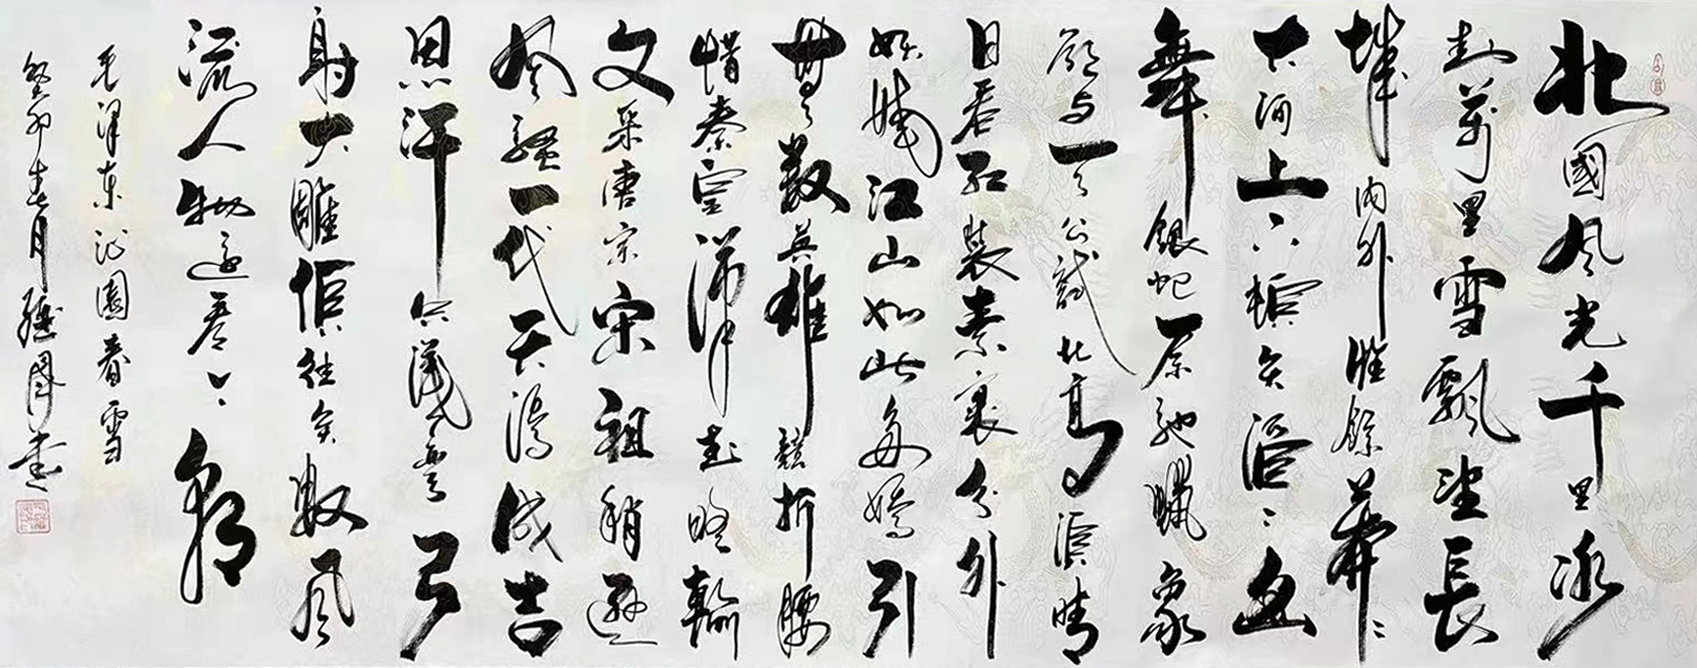 北國风光千里冰
封萬里雪飄望長
城内外惟餘莽〻
大河上下頓失滔〻山
舞銀蛇原馳蠟象
欲与天公試比高須晴
日看红装素裹分外
妖嬈江山如此多嬌引
無數英雄競折腰
惜秦皇漢武略輸
文采唐宗宋祖稍遜
风騷一代天驕成吉
思汗只識彎弓
射大雕俱往矣數风
流人物還看今朝
毛澤东沁園春雪
癸卯春月